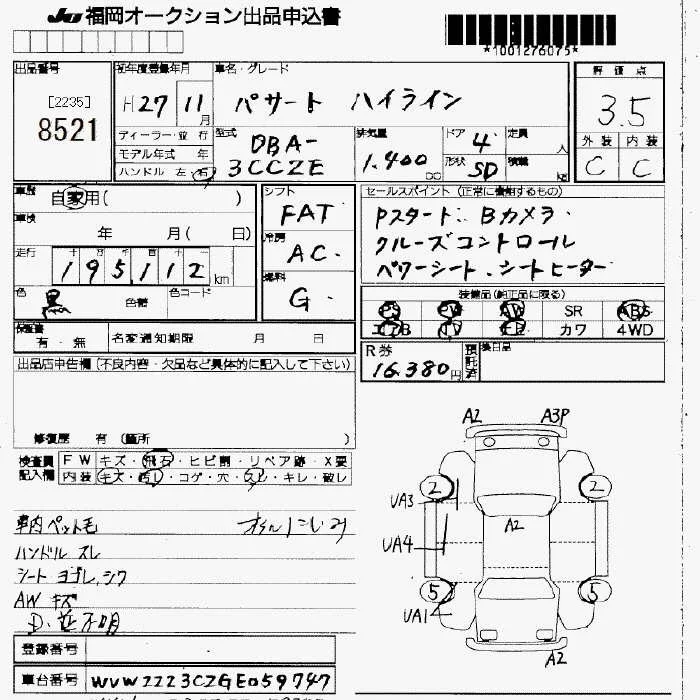 JU 福岡オークション出品申込書
*1001276075*
出品番号
[2235]
8521
初年度登録年月
H27 11月
車名・グレード
パサート ハイライン
評価点
3.5
外装 内装
C C
ディーラー・並行
モデル年式 年
ハンドル 左・右
型式
DBA-
3CCZE
排気量
1.400 CC
ドア 4
形状 SD
定員 人
積載 kg
車歴
自家用( )
車検
年 月( 日)
走行
195,112 km
色
黒
色替
色コード
シフト
FAT
冷房
AC
燃料
G
セールスポイント (正常に機能するもの)
Pスタート. Bカメラ.
クルーズコントロール
パワーシート、シートヒーター
装備品(純正品に限る)
PS PW AW SR ABS
エアB TV ナビ カワ 4WD
保証書
有・無
名変通知期限 月 日
R券
16.380円
預託済
後日品
出品店申告欄(不良内容・欠品など具体的に記入して下さい)
修復歴 有 (箇所 )
検査員
記入欄
FW キズ・飛石・ヒビ割・リペア跡・X要
内装 キズ・汚レ・コゲ・穴・スレ・キレ・破レ
車内ペット毛 オイルにじみ
ハンドル スレ
シート ヨゴレ、シワ
AW キズ
D・並不明
A2 A3P
2 2
UA3
A2
UA4
5 5
UA1
A2
登録番号
車台番号
WVWZZZ3CZGE059747